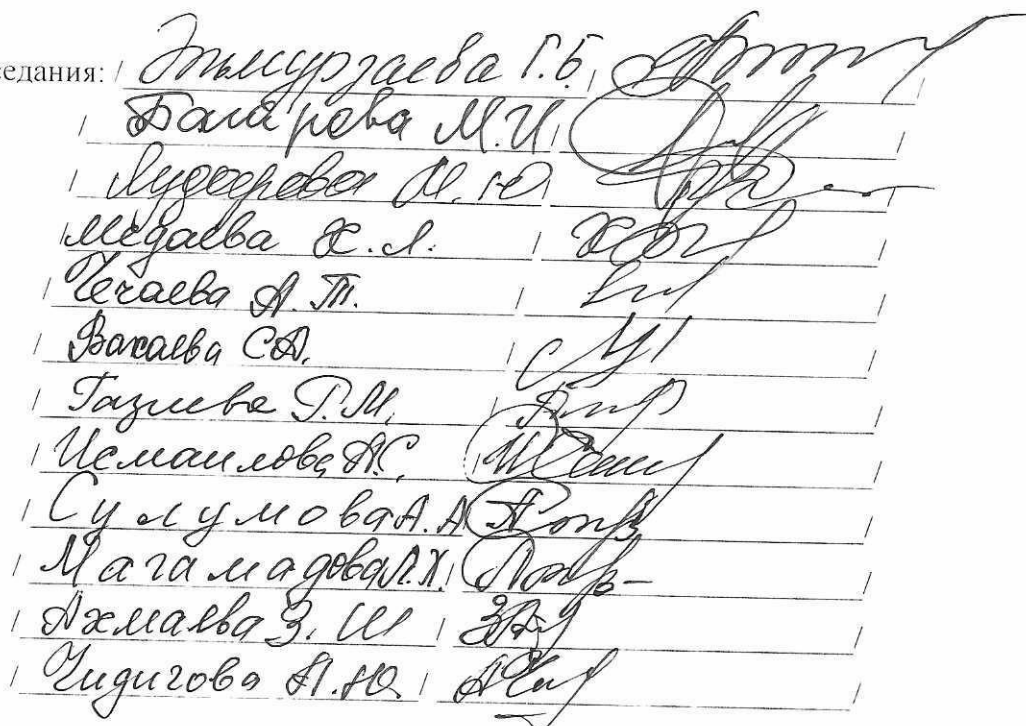 седания: / Эльмурзаева Г.Б. /
/ Батарова М.И /
/ М.Ю /
/ Медаева Х.Л. /
/ Чечаева А.Т. /
/ Вахаева С.А. /
/ Газиева Г.М. /
/ Исмаилова А.С. /
/ Сулумова А.А /
/ Магамадова Л.Х. /
/ Ахмаева З.Ш /
/ Чидигова А.Ю. /